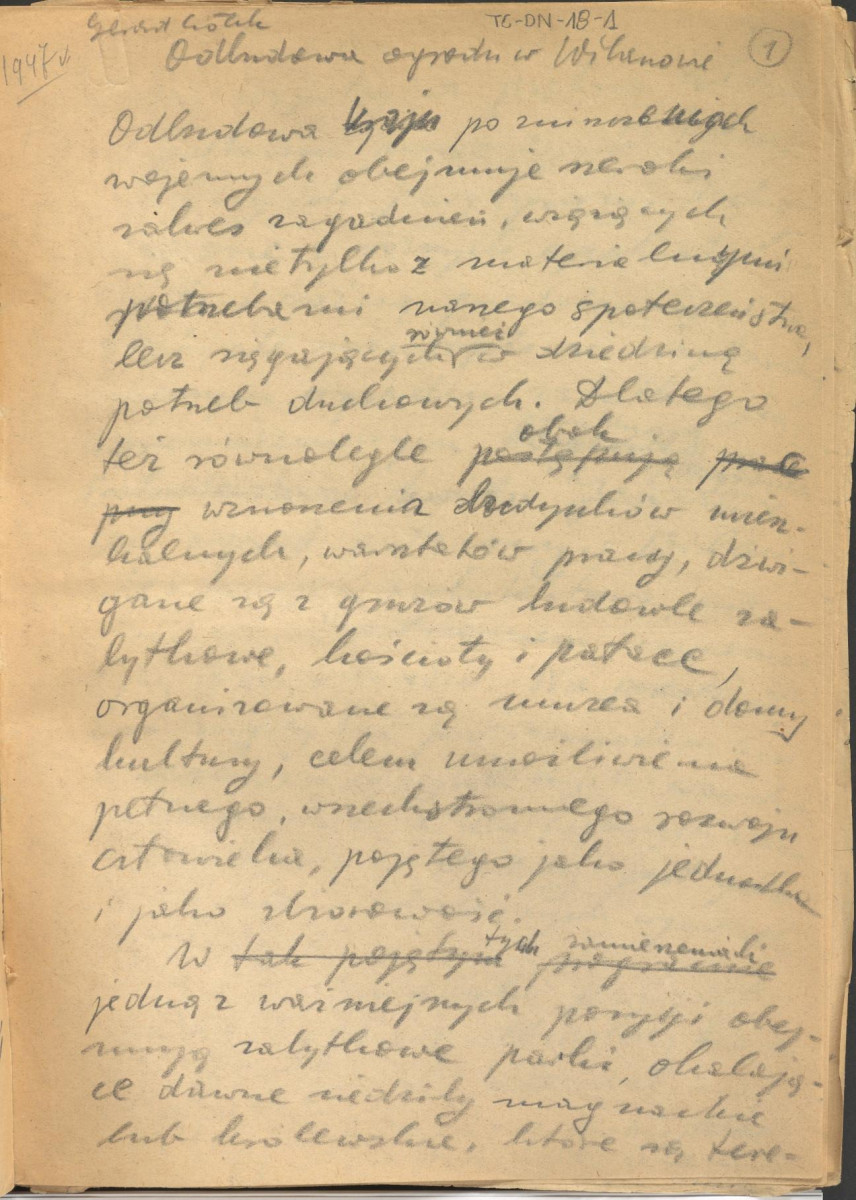 Gerard Ciołek
TG-DN-18-1
1
1947 r
Odbudowa ogrodu w Wilanowie
Odbudowa kraju po zniszczeniach
wojennych obejmuje szeroki
zakres zagadnień, wiążących
się nietylko z materialnymi
potrzebami naszego społeczeństwa,
lecz sięgających również w dziedzinę
potrzeb duchowych. Dlatego
też równolegle postępują prace obok
przy wznoszenia budynków miesz-
kalnych, warsztatów pracy, dźwi-
gane są z gruzów budowle za-
bytkowe, kościoły i pałace,
organizowane są muzea i domy
kultury, celem umożliwienia
pełnego, wszechstronnego rozwoju
człowieka, pojętego jako jednostka
i jako zbiorowość.
W tak pojętym tych programie zamierzeniach
jedną z ważniejnych pozycji obej-
mują zabytkowe parki, okalają-
ce dawne siedziby magnackie
lub królewskie, które są tere-